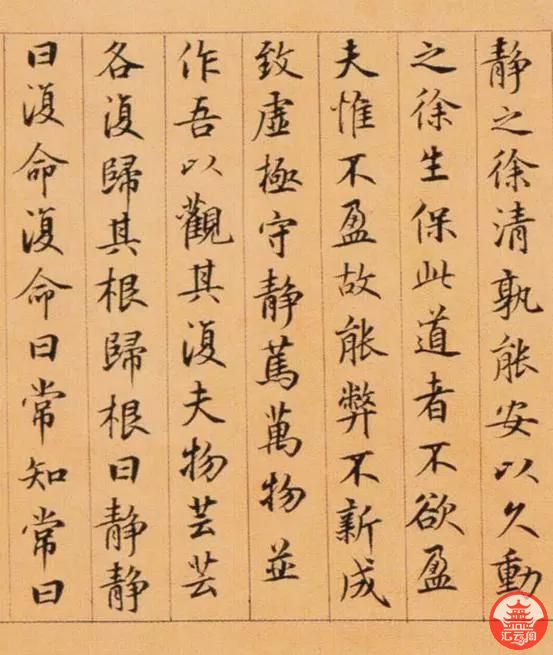 静之徐清孰能安以久動
之徐生保此道者不欲盈
夫惟不盈故能弊不新成
致虛極守静篤萬物並
作吾以觀其復夫物芸芸
各復歸其根歸根曰静静
曰復命復命曰常知常曰
汇云阁